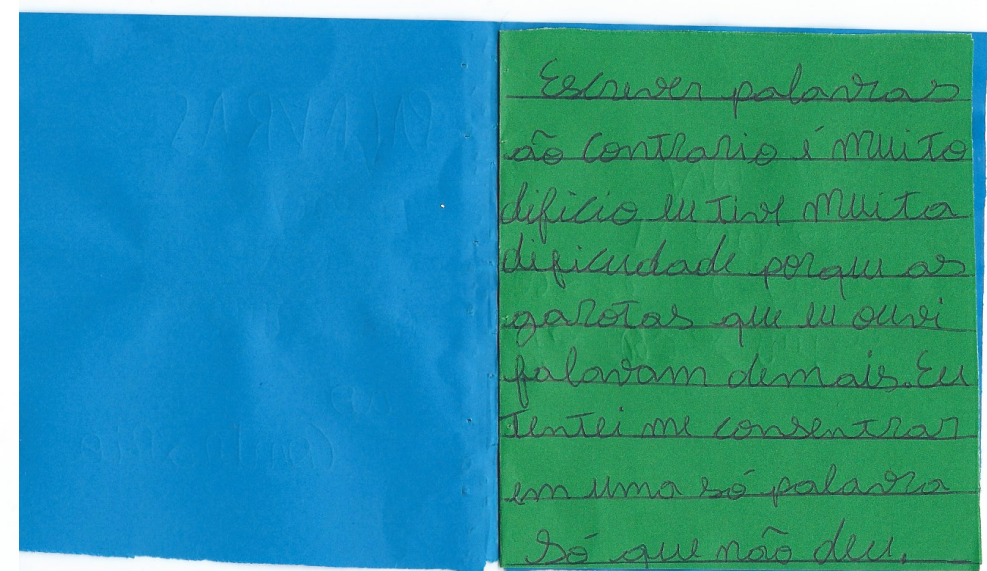 Escrever palavras
ão contrario é muito
dificio eu tive muita
dificudade porque as
garotas que eu ouvi
falavam demais. Eu
tentei me consentrar
em uma só palavra
só que não deu.